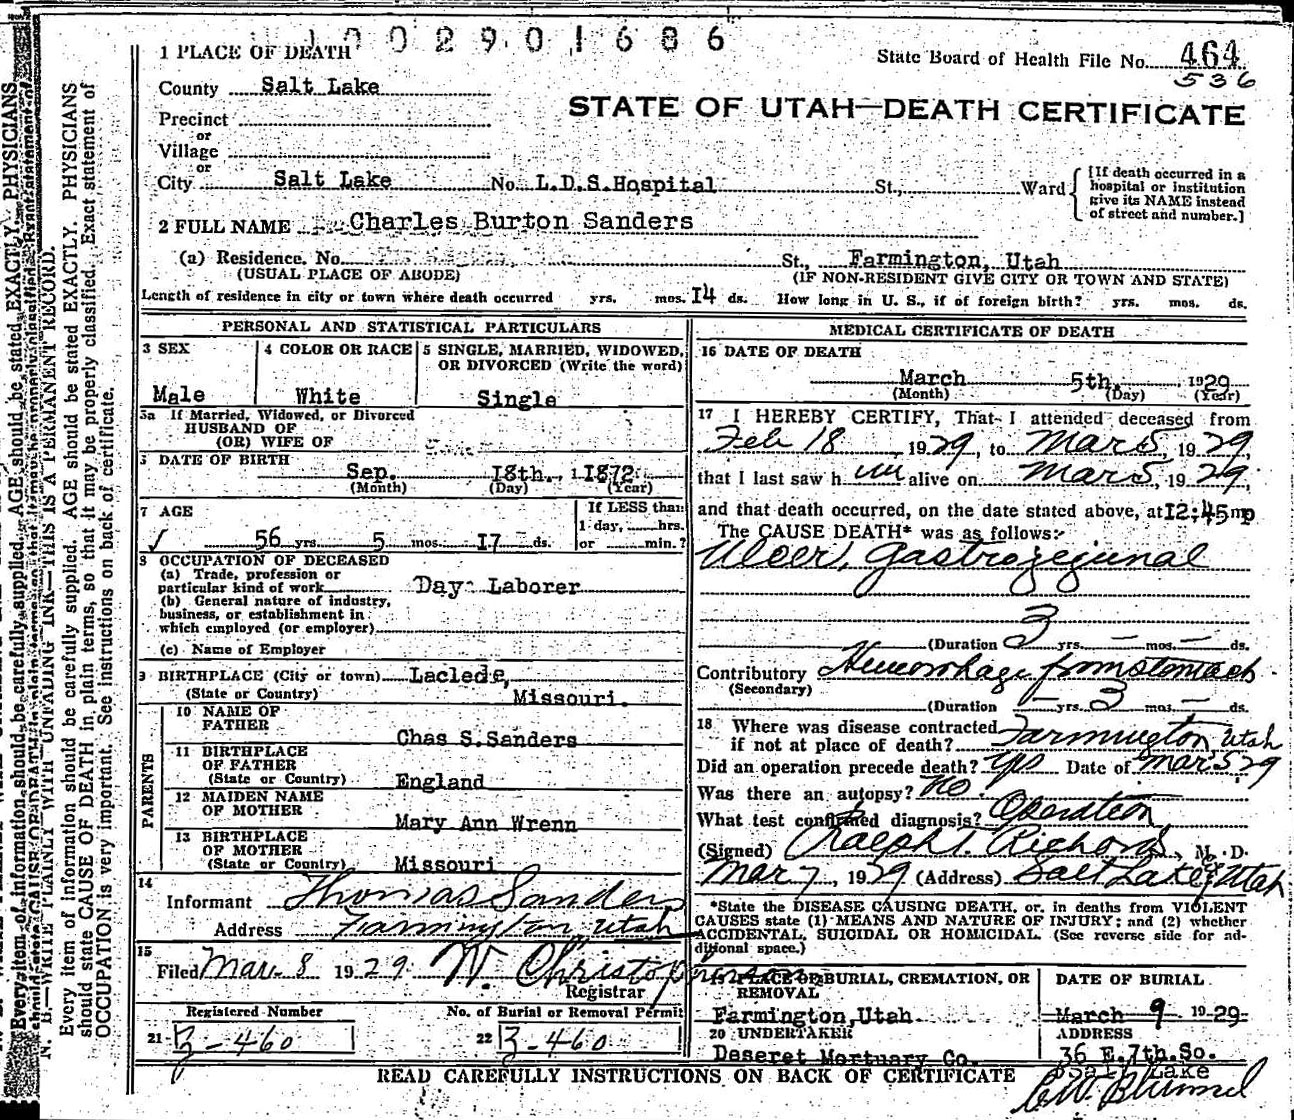 1002901686
1 PLACE OF DEATH
State Board of Health File No. 464
536
County Salt Lake
STATE OF UTAH—DEATH CERTIFICATE
Precinct
or
Village
or
City Salt Lake No. L.D.S.Hospital St., Ward [If death occurred in a hospital or institution give its NAME instead of street and number.]
2 FULL NAME Charles Burton Sanders
(a) Residence. No. St., Farmington, Utah
(USUAL PLACE OF ABODE) (IF NON-RESIDENT GIVE CITY OR TOWN AND STATE)
Length of residence in city or town where death occurred yrs. mos. I4 ds. How long in U. S., if of foreign birth? yrs. mos. ds.
PERSONAL AND STATISTICAL PARTICULARS
3 SEX 4 COLOR OR RACE 5 SINGLE, MARRIED, WIDOWED,
OR DIVORCED (Write the word)
Male White Single
5a If Married, Widowed, or Divorced
HUSBAND OF
(OR) WIFE OF
DATE OF BIRTH
Sep. I8th., I872
(Month) (Day) (Year)
7 AGE If LESS than
1 day, hrs.
56 yrs. 5 mos. I7 ds. or min.?
8 OCCUPATION OF DECEASED
(a) Trade, profession or
particular kind of work Day Laborer
(b) General nature of industry,
business, or establishment in
which employed (or employer)
(c) Name of Employer
9 BIRTHPLACE (City or town) Laclede,
(State or Country) Missouri.
PARENTS
10 NAME OF
FATHER Chas S.Sanders
11 BIRTHPLACE
OF FATHER
(State or Country) England
12 MAIDEN NAME
OF MOTHER Mary Ann Wrenn
13 BIRTHPLACE
OF MOTHER
(State or Country) Missouri
14
Informant Thomas Sanders
Address Farmington, Utah
15
Filed Mar 8 1929. W. Christopherson
Registrar
Registered Number No. of Burial or Removal Permit
21 3-460 22 3-460
MEDICAL CERTIFICATE OF DEATH
16 DATE OF DEATH
March 5th. 1929
(Month) (Day) (Year)
17 I HEREBY CERTIFY, That I attended deceased from
Feb 18, 1929, to Mar 5, 1929,
that I last saw him alive on Mar 5, 1929,
and that death occurred, on the date stated above, at I2:45 mp
The CAUSE DEATH* was as follows:
Ulcer, Gastrojejunal
(Duration 3 yrs. — mos. — ds.
Contributory Hemorrhage from stomach
(Secondary)
(Duration — yrs. 3 mos. — ds.
18 Where was disease contracted
if not at place of death? Farmington, Utah
Did an operation precede death? Yes Date of Mar 5 29
Was there an autopsy? No
What test confirmed diagnosis? Operation
(Signed) Ralph T. Richards, M. D.
Mar 7, 1929 (Address) Salt Lake City Utah
*State the DISEASE CAUSING DEATH, or, in deaths from VIOLENT
CAUSES state (1) MEANS AND NATURE OF INJURY; and (2) whether
ACCIDENTAL, SUICIDAL OR HOMICIDAL. (See reverse side for ad-
ditional space.)
19 PLACE OF BURIAL, CREMATION, OR
REMOVAL DATE OF BURIAL
Farmington,Utah March 9 1929
20 UNDERTAKER ADDRESS
Deseret Mortuary Co. 36 E.7th.So.
Salt Lake
READ CAREFULLY INSTRUCTIONS ON BACK OF CERTIFICATE
N. B.—WRITE PLAINLY WITH UNFADING INK—THIS IS A PERMANENT RECORD.
Every item of information should be carefully supplied. AGE should be stated EXACTLY. PHYSICIANS
should state CAUSE OF DEATH in plain terms, so that it may be properly classified. Exact statement of
OCCUPATION is very important. See instructions on back of certificate.